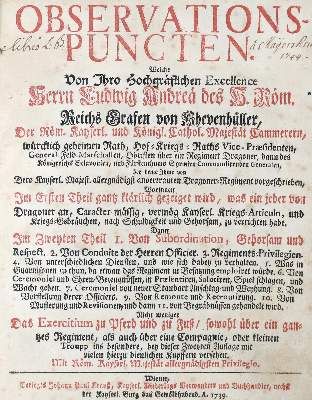 OBSERVATIONS-
PUNCTEN.
Welche
Von Ihro Hochgräflichen Excellence
Herrn Ludwig Andreä des H. Röm.
Reichs Grafen von Khevenhüller,
Der Röm. Kayserl. und Königl. Cathol. Majestät Cammerern,
würcklich geheimen Rath, Hof-Kriegs-Raths Vice-Præsidenten,
General Feld-Marschallen, Obristen über ein Regiment Dragoner, dann des
Königreichs Sclavonien, und Fürstenthums Syrmien Commandirenden Generalen,
Dero Kayserl. Majest. allergnädigst anvertrauten Dragoner-Regiment vorgeschrieben,
Worinnen
Im Ersten Theil gantz klärlich gezeiget wird, was ein jeder von
Dragoner an, Caracter mässig, vermög Kayserl. Kriegs-Articuln, und
Kriegs-Gebräuchen, nach Schuldigkeit und Gehorsam, zu verrichten habe.
Dann
Im Zweyten Theil 1. Von Subordination, Gehorsam und
Respect. 2. Von Conduite der Herren Officier. 3. Regiments-Privilegien.
4. Von unterschiedlichen Diensten, und wie sich dabey zu verhalten. 5. Was in
Guarnisonen zu thun, da etwan das Regiment in Besatzung employiret würde. 6. Von
Ceremoniel und Ehren-Bezeugungen, in Præsentiren, Salutiren, Spiel schlagen, und
Wacht geben. 7. Ceremoniel wegen neuer Standart Anschlag- und Weyhung. 8. Von
Vorstellung derer Officiers. 9. Von Remonte und Recroutirung. 10. Von
Musterung und Revisionen, und dann 11. von Begräbnüssen gehandelt wird.
Nicht weniger
Das Exercitium zu Pferd und zu Fuß, sowohl über ein gan-
tzes Regiment, als auch über eine Compagnie, oder kleinen
Troupp ins besondere, bey dieser Zweyten Auflage mit
vielen hierzu dienlichen Kupffern versehen.
Mit Röm. Kayserl. Majestät allergnädigsten Privilegio.
Wienn,
Verlegts Johann Paul Krauß, Kayserl. Niederlags Verwandten und Buchhändler, nechst
der Kayserl. Burg das Gewölb habend. A. 1739.